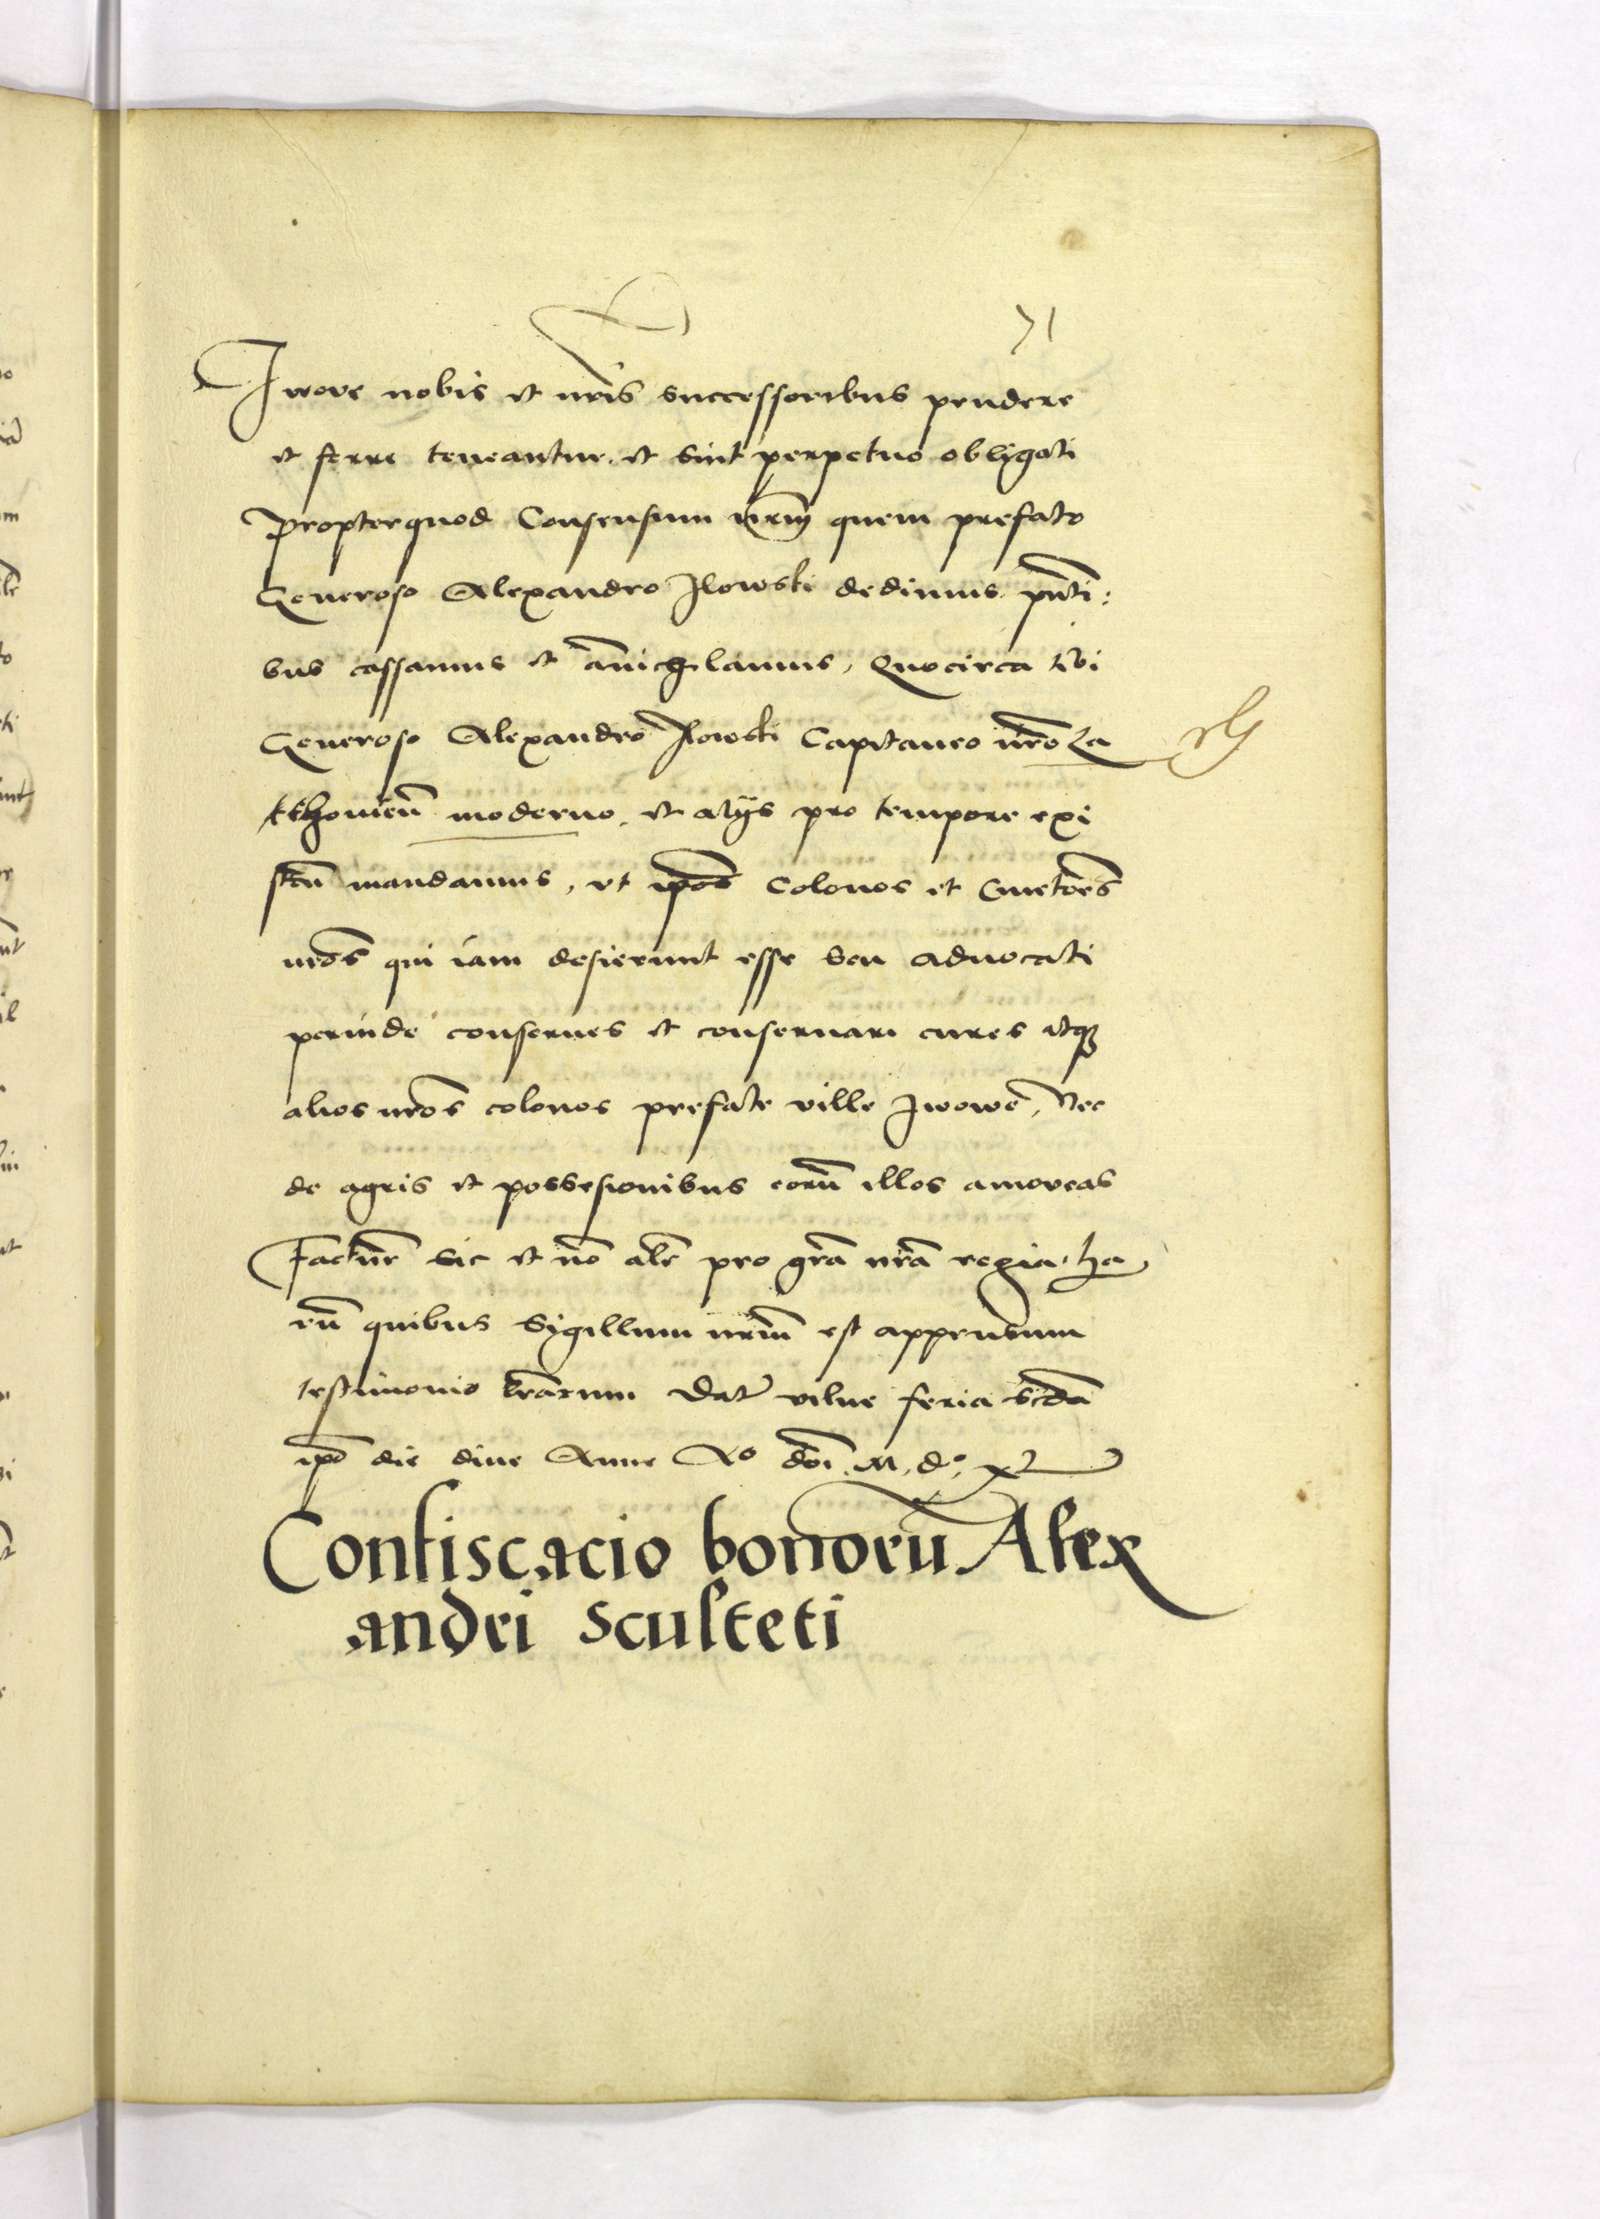 71
Iwove nobis et nr̃is successoribus pendere
et ferre teneantur. et sint perpetuo obligati
Propterquod Consensum nr̃m quem prefato
Generoso Alexandro Ilowski dedimus. pñti:
bus cassamus et añichilamus, Quocirca tibi
Generoso Alexandro Ilowski Capitaneo nr̃o Za
kthovien̄ moderno. et alijs pro tempore exi
sten̄ mandamus, vt ip̃os Colonos et Cmetoẽs
nr̃os qui iam desierunt esse seu aduocati
perinde conserues et conseruari cures atqꝫ
alios nr̃os colonos prefate ville Iwowe, Nec
de agris et possesionibus eorũ illos amoveas
Facturẽ sic et nõ alr̃ pro gr̃a nr̃a regia. ha
rũ quibus Sigillum nr̃m est appensum
testimonio lr̃arum Dat̃ vilne feria scđa
ip̃o die diue Anne Aº dñi. M. dº. xl
Confiscacio bonorũ Alex
andri sculteti